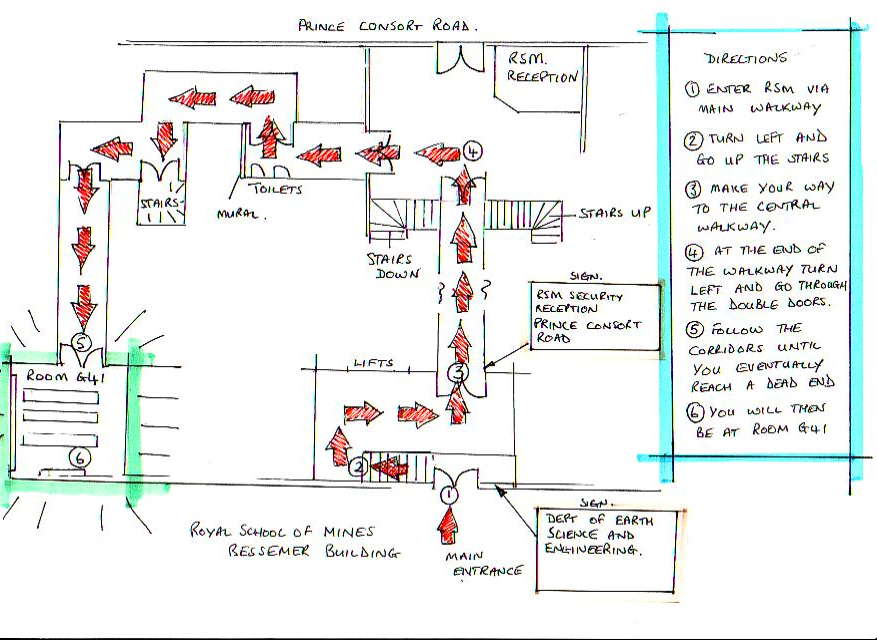 PRINCE CONSORT ROAD.
RSM.
RECEPTION
④
STAIRS
TOILETS
MURAL.
STAIRS UP
STAIRS
DOWN
SIGN.
RSM SECURITY
RECEPTION
PRINCE CONSORT
ROAD
⑤
ROOM G41
⑥
LIFTS
③
②
①
MAIN
ENTRANCE
SIGN.
DEPT OF EARTH
SCIENCE AND
ENGINEERING.
ROYAL SCHOOL OF MINES
BESSEMER BUILDING
DIRECTIONS
① ENTER RSM VIA
MAIN WALKWAY
② TURN LEFT AND
GO UP THE STAIRS
③ MAKE YOUR WAY
TO THE CENTRAL
WALKWAY.
④ AT THE END OF
THE WALKWAY TURN
LEFT AND GO THROUGH
THE DOUBLE DOORS.
⑤ FOLLOW THE
CORRIDORS UNTIL
YOU EVENTUALLY
REACH A DEAD END
⑥ YOU WILL THEN
BE AT ROOM G41